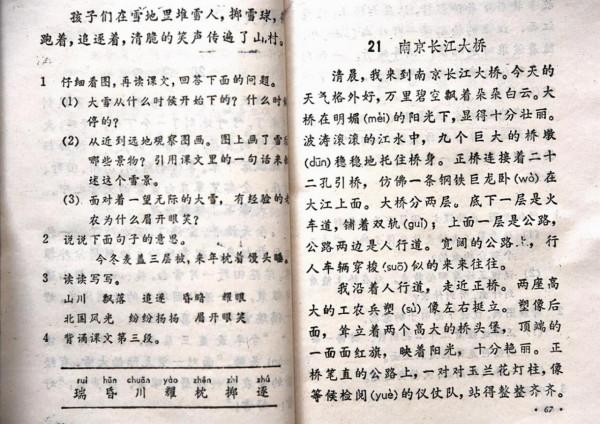 孩子们在雪地里堆雪人，掷雪球，
跑着，追逐着，清脆的笑声传遍了山村。
1 仔细看图，再读课文，回答下面的问题。
(1) 大雪从什么时候开始下的？什么时
停的？
(2) 从近到远地观察图画。图上画了雪
哪些景物？引用课文里的一句话来
述这个雪景。
(3) 面对着一望无际的大雪，有经验的
农为什么眉开眼笑？
2 说说下面句子的意思。
今冬麦盖三层被，来年枕着馒头睡。
3 读读写写。
山川 飘落 追逐 昏暗 耀眼
北国风光 纷纷扬扬 眉开眼笑
4 背诵课文第三段。
ruì hūn chuān yào zhěn zhì zhú
瑞 昏 川 耀 枕 掷 逐
21 南京长江大桥
清晨，我来到南京长江大桥。今天的
天气格外好，万里碧空飘着朵朵白云。大
桥在明媚(mèi)的阳光下，显得十分壮丽。
波涛滚滚的江水中，九个巨大的桥墩
(dūn)稳稳地托住桥身。正桥连接着二十
二孔引桥，仿佛一条钢铁巨龙卧(wò)在
大江上面。大桥分两层。底下一层是火
车道，铺着双轨(guǐ)；上面一层是公路，
公路两边是人行道。宽阔的公路上，行
人车辆穿梭(suō)似的来来往往。
我沿着人行道，走近正桥。两座高
大的工农兵塑(sù)像左右挺立。塑像后
面，耸立着两个高大的桥头堡，顶端的
一面面红旗，映着阳光，十分艳丽。正
桥笔直的公路上，一对对玉兰花灯柱，像
等候检阅(yuè)的仪仗队，站得整整齐齐。
·67·